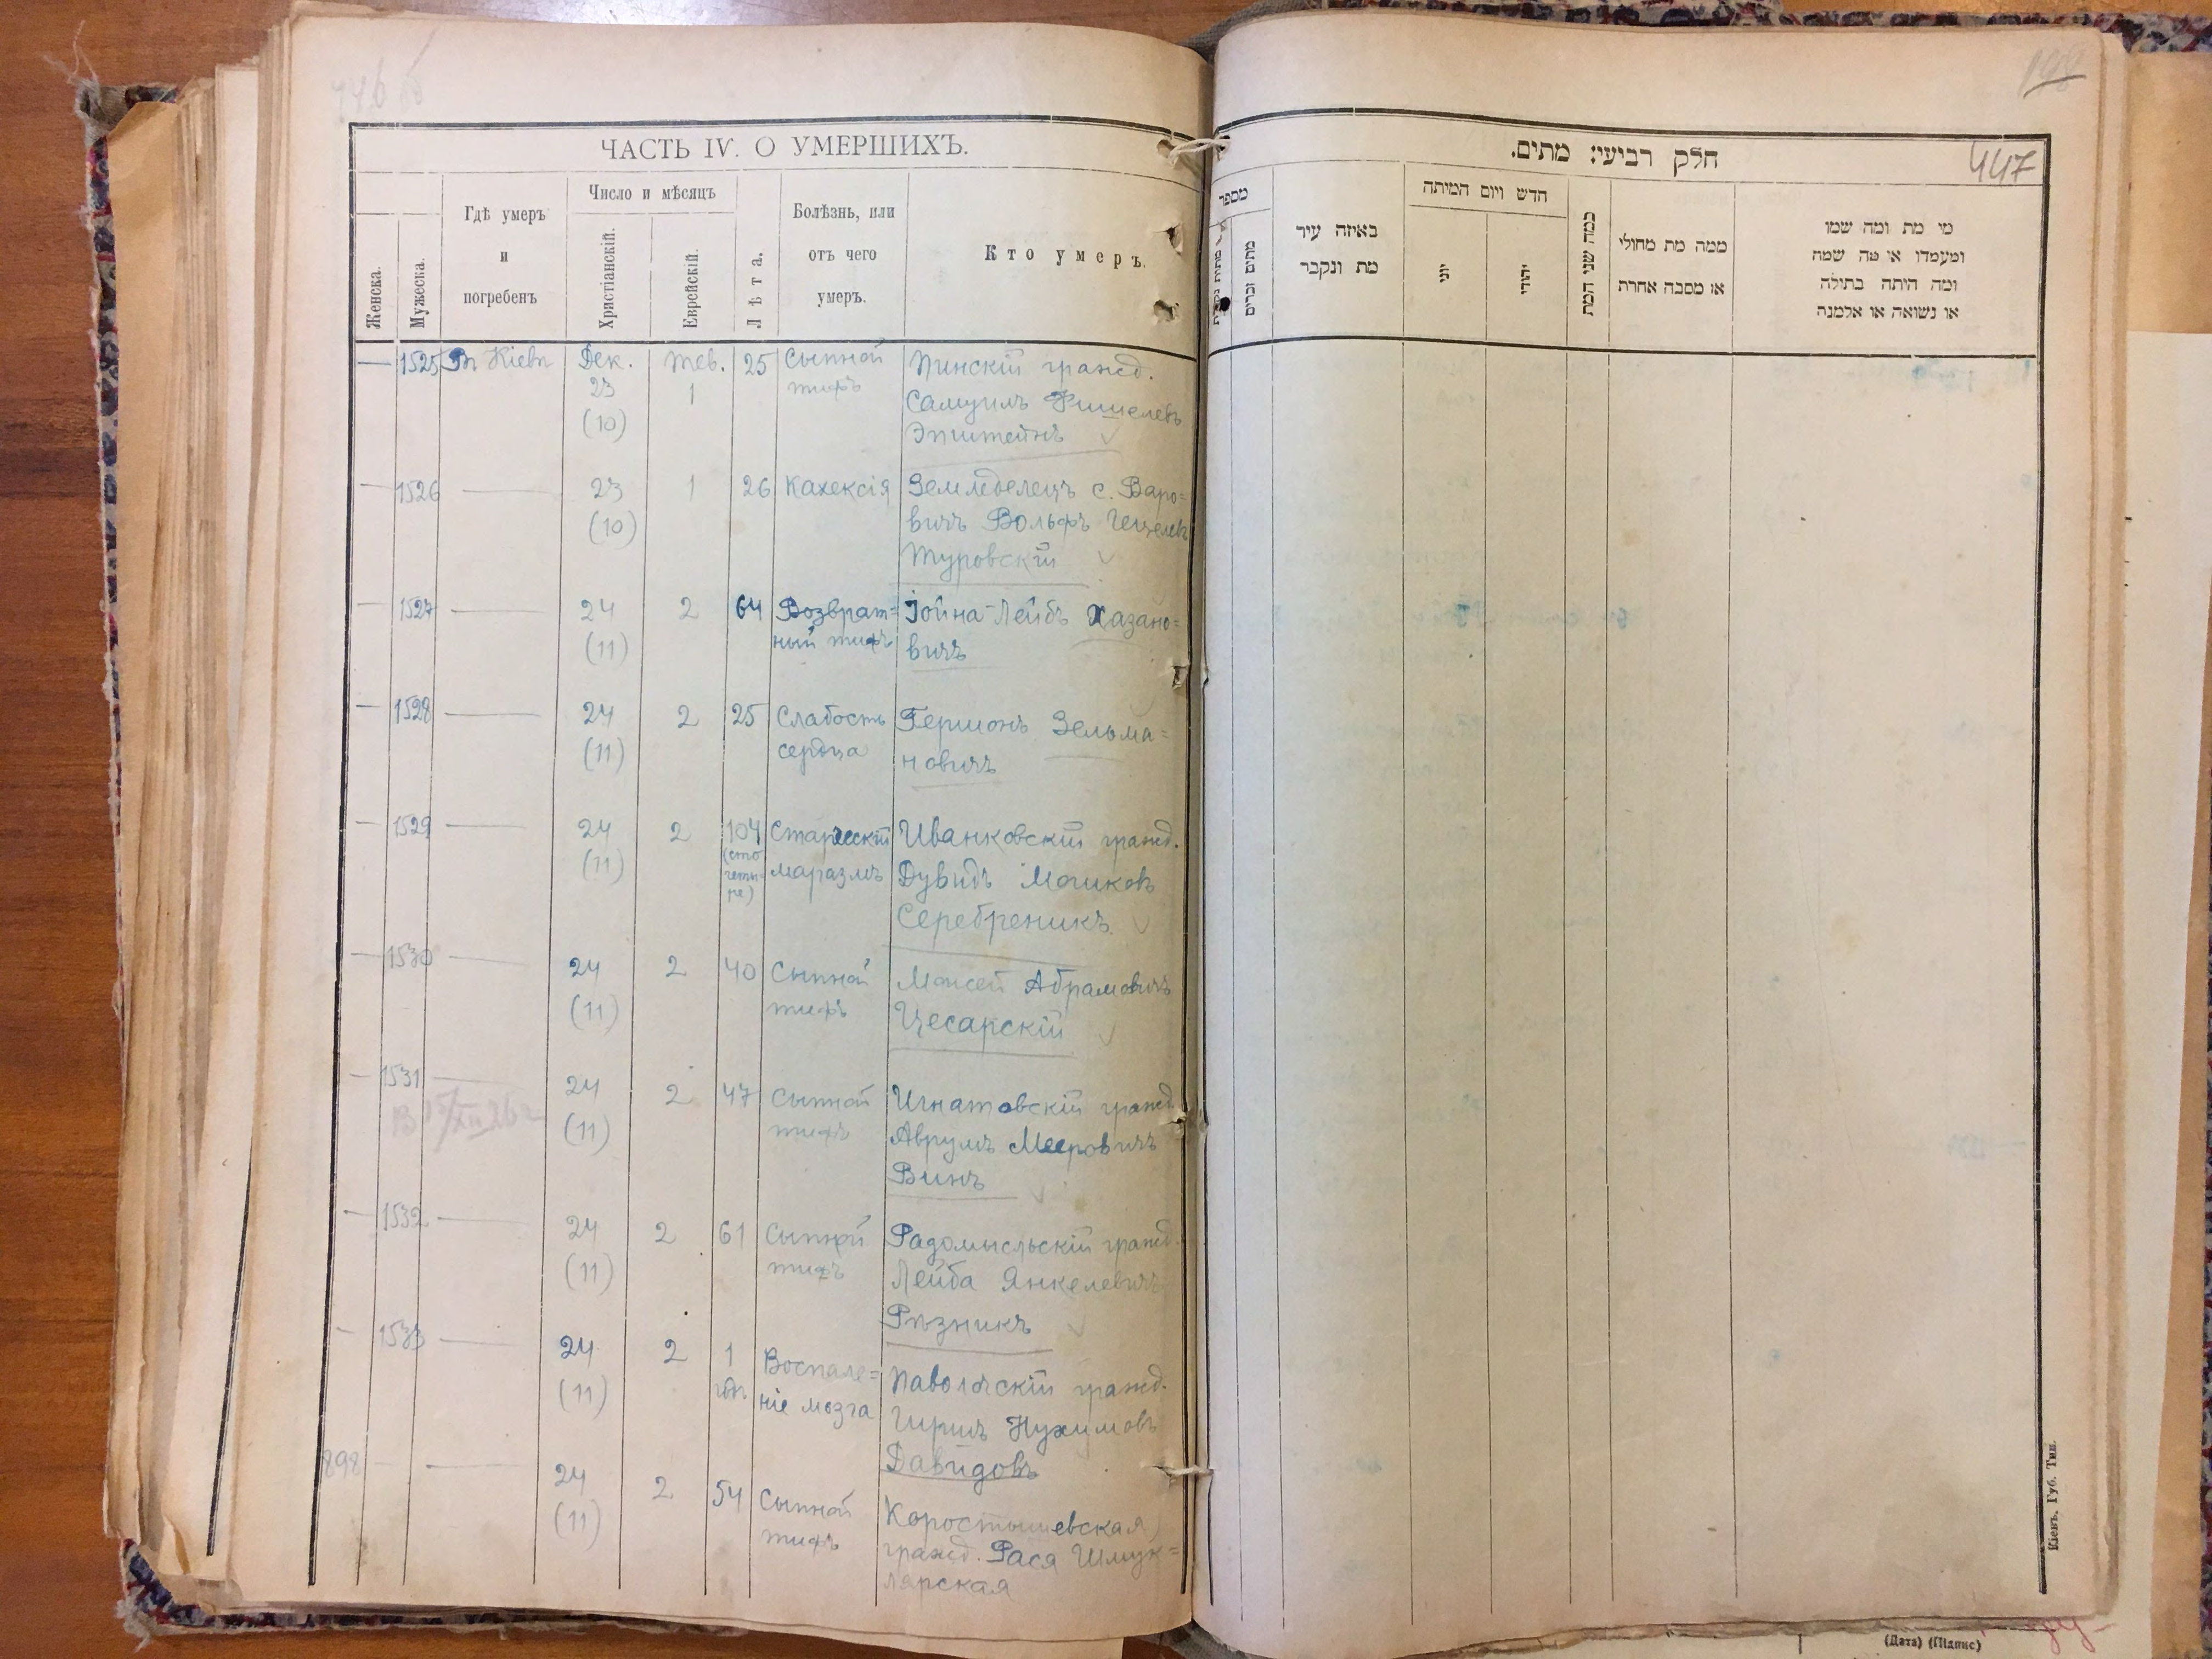 446 об
ЧАСТЬ IV. О УМЕРШИХЪ.
Женска.
Мужеска.
Гдѣ умеръ
и
погребенъ
Число и мѣсяцъ
Христіанскій.
Еврейскій.
Лѣта.
Болѣзнь, или
отъ чего
умеръ.
Кто умеръ.
— 1525 Въ Кіевѣ Дек. Тев. 25 Сыпной Пинскій гражд.
23 1 тифъ Самуилъ Фишелевъ
(10) Эпштейнъ
— 1526 — 23 1 26 Кахексія Земледелецъ с. Варо=
(10) вичъ Вольфъ Ицелевъ
Туровскій
— 1527 — 24 2 64 Возврат= Іойна-Лейбъ Хазано=
(11) ный тифъ вичъ
— 1528 — 24 2 25 Слабость Гершонъ Зельма=
(11) сердца новичъ
— 1529 — 24 2 104 Старческій Иванковскій гражд.
(11) (сто четы-ре) маразмъ Дувидъ Мошковъ
Серебреникъ
— 1530 — 24 2 40 Сыпной Моисей Абрамовичъ
(11) тифъ Цесарскій
— 1531 — 24 2 47 Сыпной Игнатовскій гражд.
В 15/XII 26 г (11) тифъ Аврумъ Мееровичъ
Винъ
— 1532 — 24 2 61 Сыпной Радомысльскій гражд.
(11) тифъ Лейба Янкелевичъ
Рѣзникъ
— 1533 — 24 2 1 Воспале= Паволочскій гражд.
(11) годъ ніе мозга Нухимовъ
Давидовъ
898 — — 24 2 54 Сыпной Коростышевская
(11) тифъ гражд. Рася Шмук=
лярская
198
חלק רביעי: מתים.
447
מספר
מתים זכרים
באיזה עיר
מת ונקבר
חדש ויום המיתה
יוני
יהודי
כמה שני המת
ממה מת מחולי
או מסבה אחרת
מי מת ומה שמו
ומעמדו או מה שמה
ומה היתה בתולה
או נשואה או אלמנה
Кіевъ, Губ. Тип.
(Дата) (Підпис)